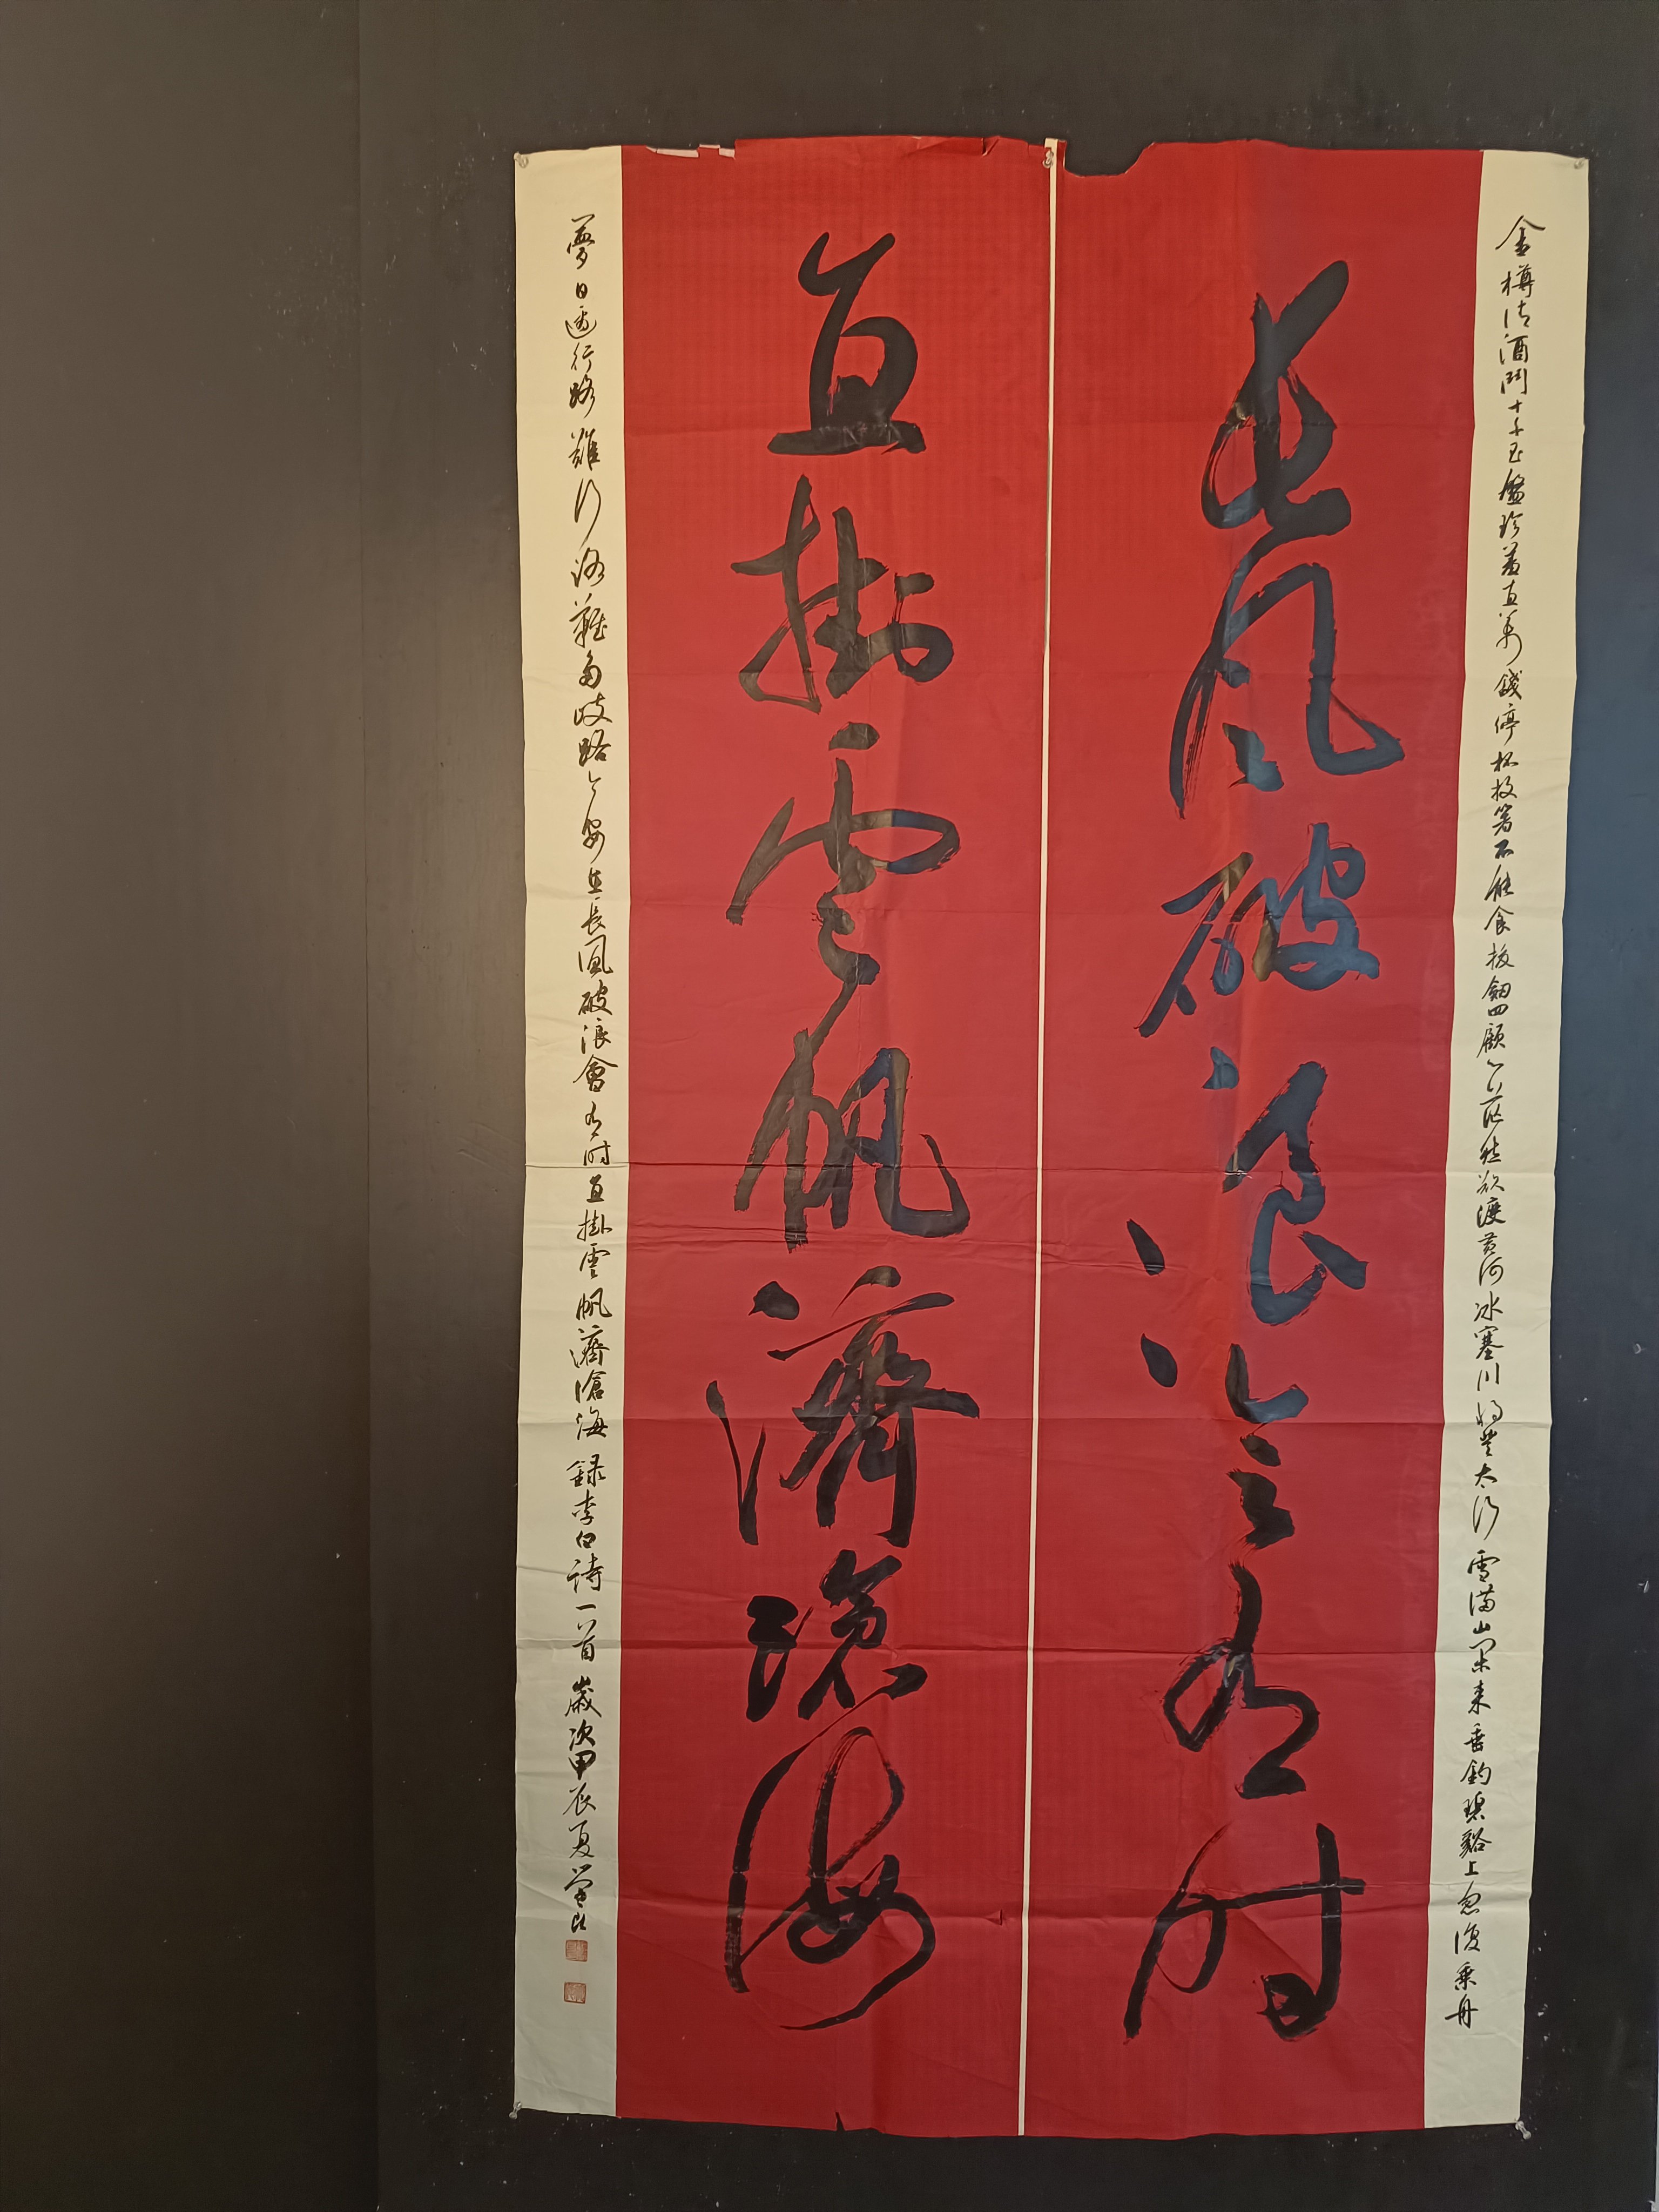 金樽清酒鬥十千玉盤珍羞直萬錢停杯投箸不能食拔劍四顧心茫然欲渡黃河冰塞川將登太行雪滿山閑來垂釣碧谿上忽復乘舟
長風破浪會有時
直掛雲帆濟滄海
夢日邊行路難行路難多歧路今安在長風破浪會有時直掛雲帆濟滄海 録李白詩一首 歲次甲辰夏